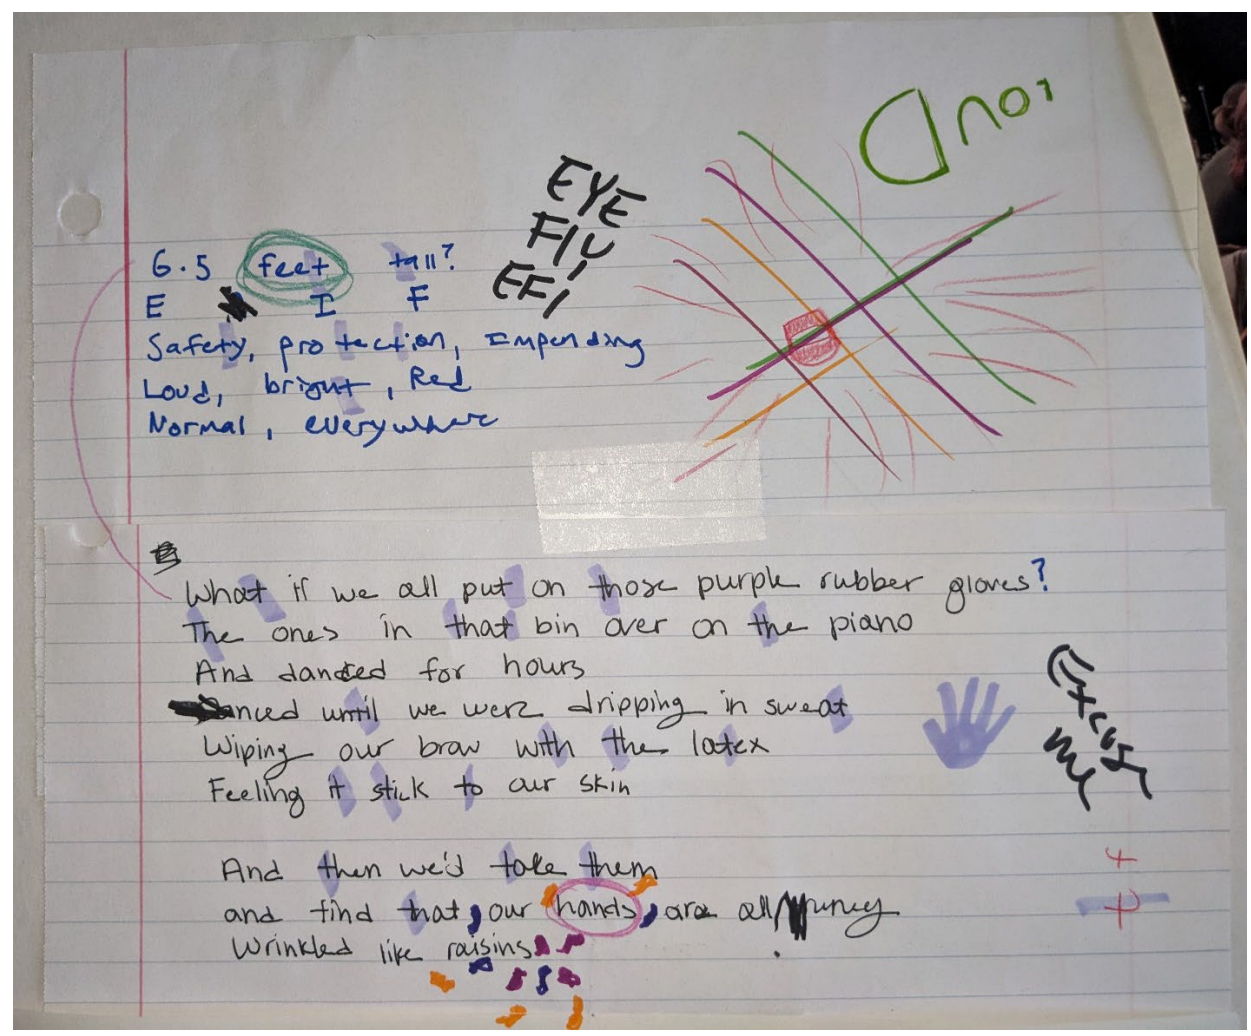 EYE
FIU
EFI
6.5 feet tall?
E I F
Safety, protection, Impending
Loud, bright, Red
Normal, everywhere
What if we all put on those purple rubber gloves?
The ones in that bin over on the piano
And danced for hours
Danced until we were dripping in sweat
Wiping our brow with the latex
Feeling it stick to our skin
Excuse
me
And then we'd take them
and find that, our hands, are all pruney
Wrinkled like raisins